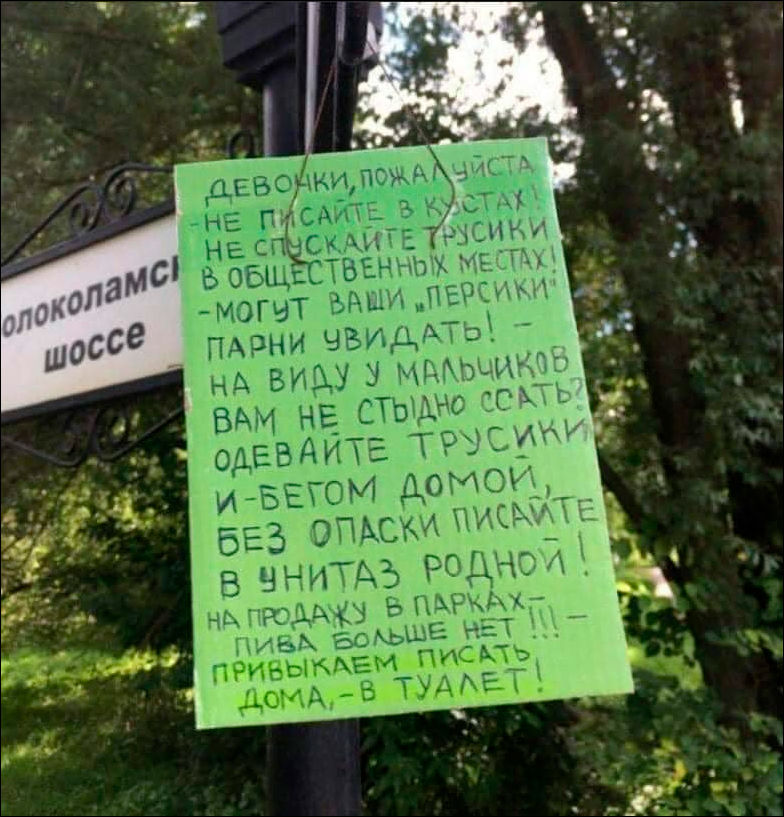 олоколамс
шоссе
ДЕВОЧКИ, ПОЖАЛУЙСТА
-НЕ ПИСАЙТЕ В КУСТАХ!
НЕ СПУСКАЙТЕ ТРУСИКИ
В ОБЩЕСТВЕННЫХ МЕСТАХ!
-МОГУТ ВАШИ „ПЕРСИКИ"
ПАРНИ УВИДАТЬ! -
НА ВИДУ У МАЛЬЧИКОВ
ВАМ НЕ СТЫДНО ССАТЬ?
ОДЕВАЙТЕ ТРУСИКИ,
И-БЕГОМ ДОМОЙ,
БЕЗ ОПАСКИ ПИСАЙТЕ
В УНИТАЗ РОДНОЙ!
НА ПРОДАЖУ В ПАРКАХ-
ПИВА БОЛЬШЕ НЕТ!!! -
ПРИВЫКАЕМ ПИСАТЬ
ДОМА,-В ТУАЛЕТ!